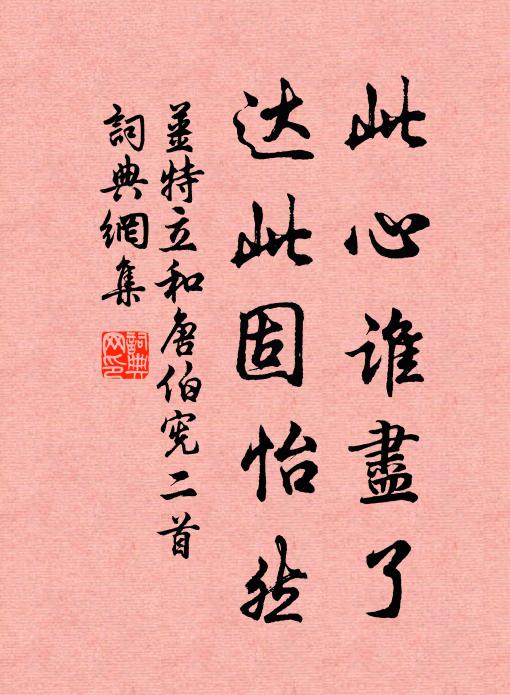 此心谁盡了
达此固怡然
姜特立和唐伯宪二首
詞典網集
詞典网印